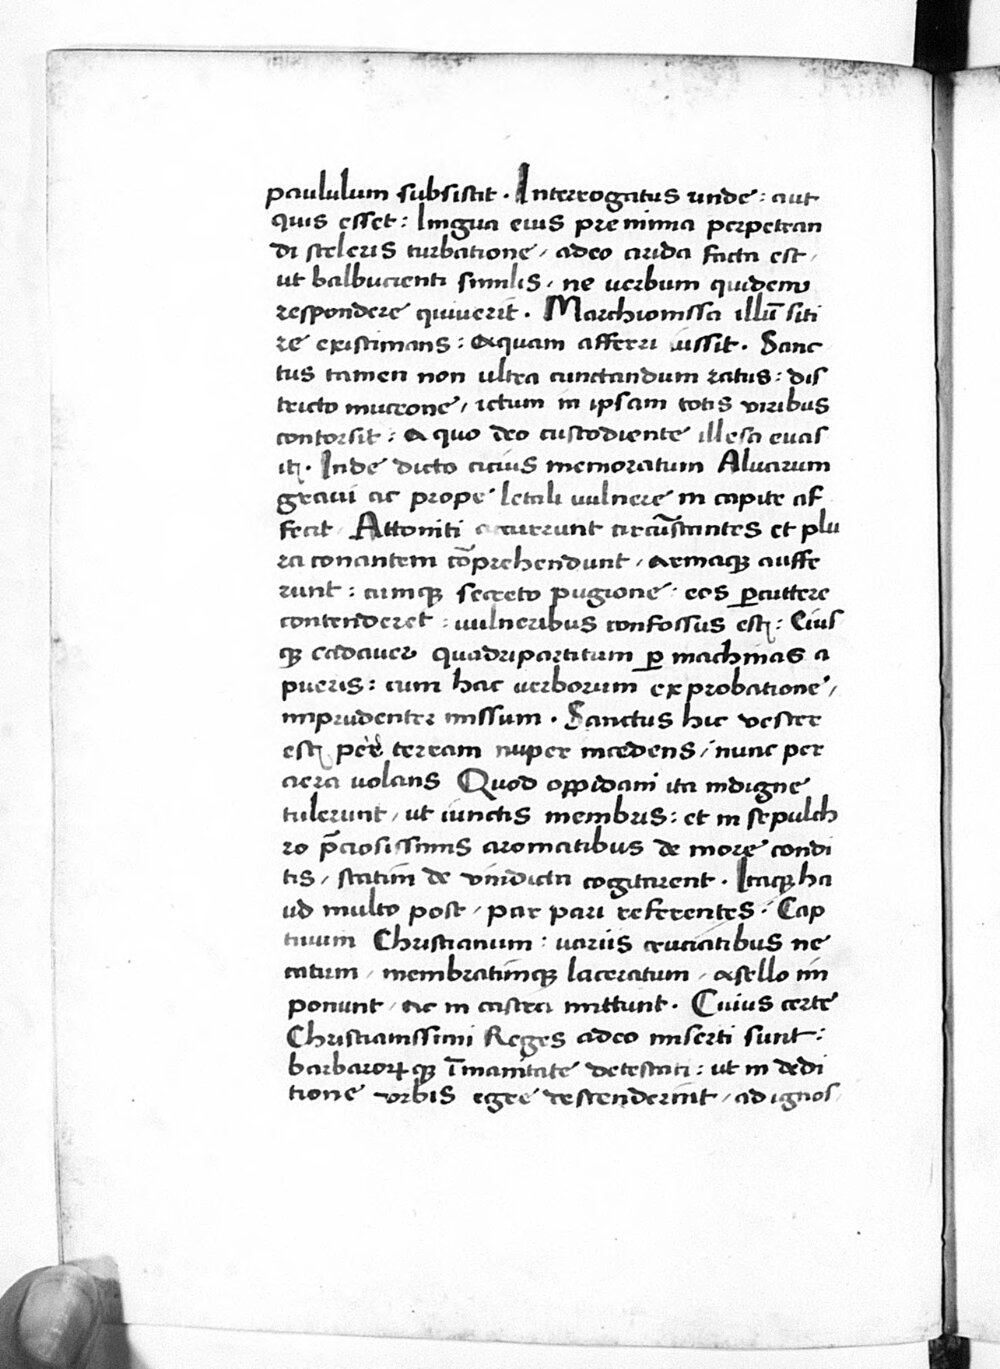 paululum subsistit. Interrogatus unde: aut
quis esset: lingua eius pre nimia perpetran
di sceleris turbatione, adeo arida facta est,
ut balbucienti similis, ne uerbum quidem
respondere quiuerit. Marchionissa illū siti
re existimans: aquam afferri iussit. Sanc
tus tamen non ultra cunctandum ratus: dis
tricto mucrone, ictum in ipsam totis viribus
contorsit: a quo deo custodiente illesa euas
it. Inde dicto citius memoratum Aluarum
graui ac prope letali uulnere in capite af
fecit. Attoniti accurrunt circūstantes et plu
ra conantem cōprehendunt, armaqꝫ auffe
runt: cumqꝫ secreto pugione: eos ꝑcuttere
contenderet: uulneribus confossus est: Eius
qꝫ cadauer quadripartitum ꝑ machinas a
pueris: cum hac uerborum exprobatione,
imprudenter missum. Sanctus hic vester
est per terram nuper incedens, nunc per
aera uolans Quod oppidani ita indigne
tulerunt, ut iunctis membris: et in sepulch
ro p̄ciosissimis aromatibus de more condi
tis, statim de vindicta cogitarent. Itaqꝫ ha
ud multo post, par pari referentes. Cap
tiuum Christianum: uariis cruciatibus ne
catum, membratimqꝫ laceratum, asello im
ponunt, ac in castra mittunt. Cuius certe
Christianissimi Reges adeo miserti sunt:
barbaroꝝqꝫ īmanitate detestati: ut in dedi
tione vrbis egre descenderint, ad ignos,